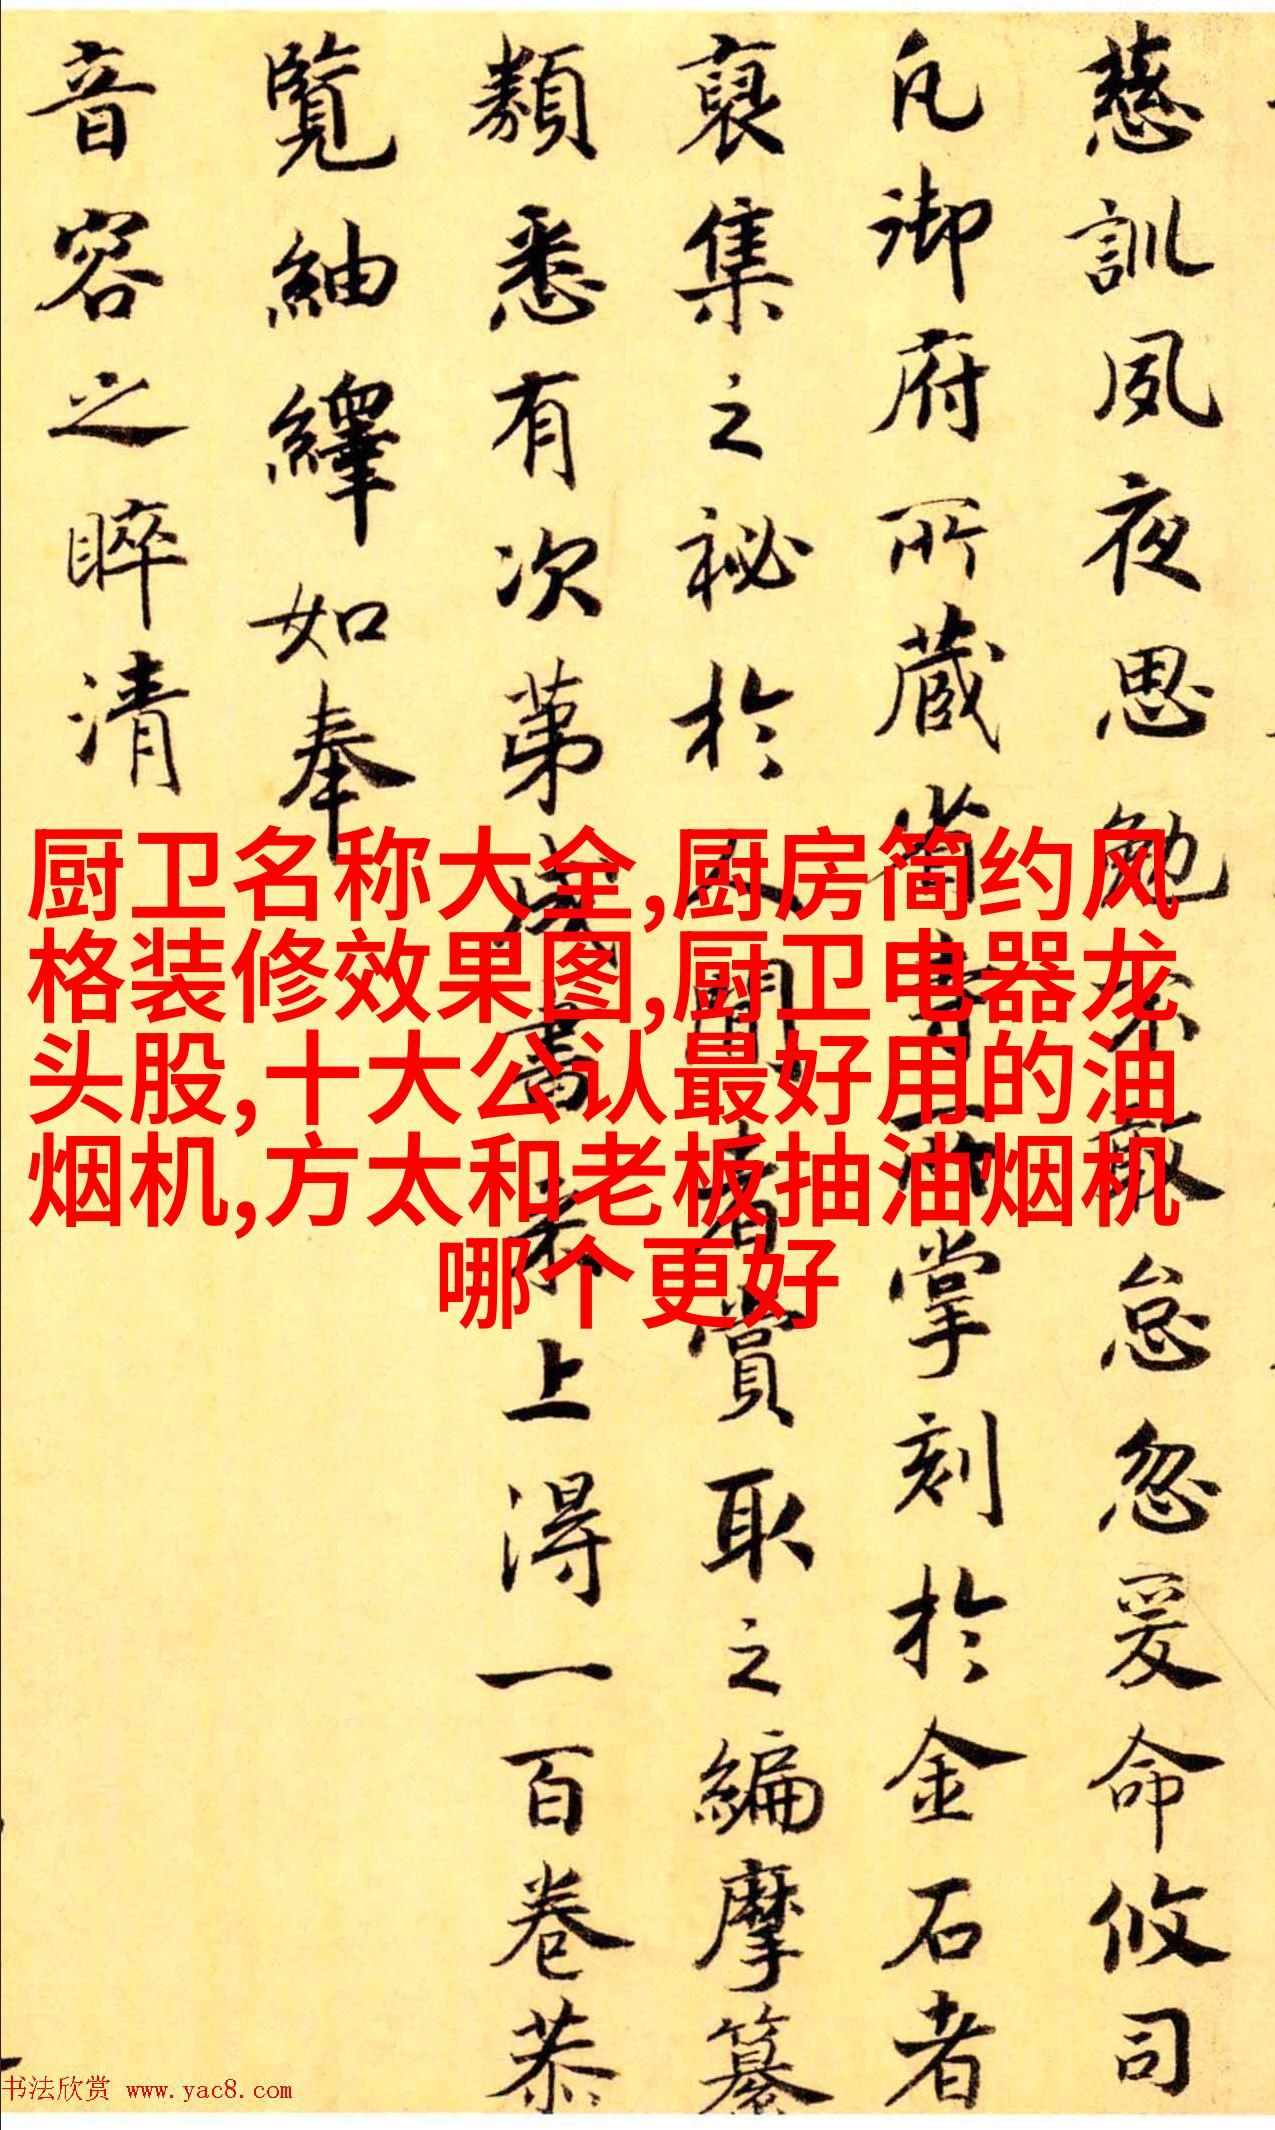 慈訓夙夜思勉不敢怠忽爰命攸司
凡御府所藏嘗書而掌刻於金石者
裒集之祕於人間者賞取之編摩纂
類悉有次第成書來上得一百卷恭
覽紬繹如奉
音容之睟清
厨卫名称大全,厨房简约风
格装修效果图,厨卫电器龙
头股,十大公认最好用的油
烟机,方太和老板抽油烟机
哪个更好
书法欣赏 www.yac8.com